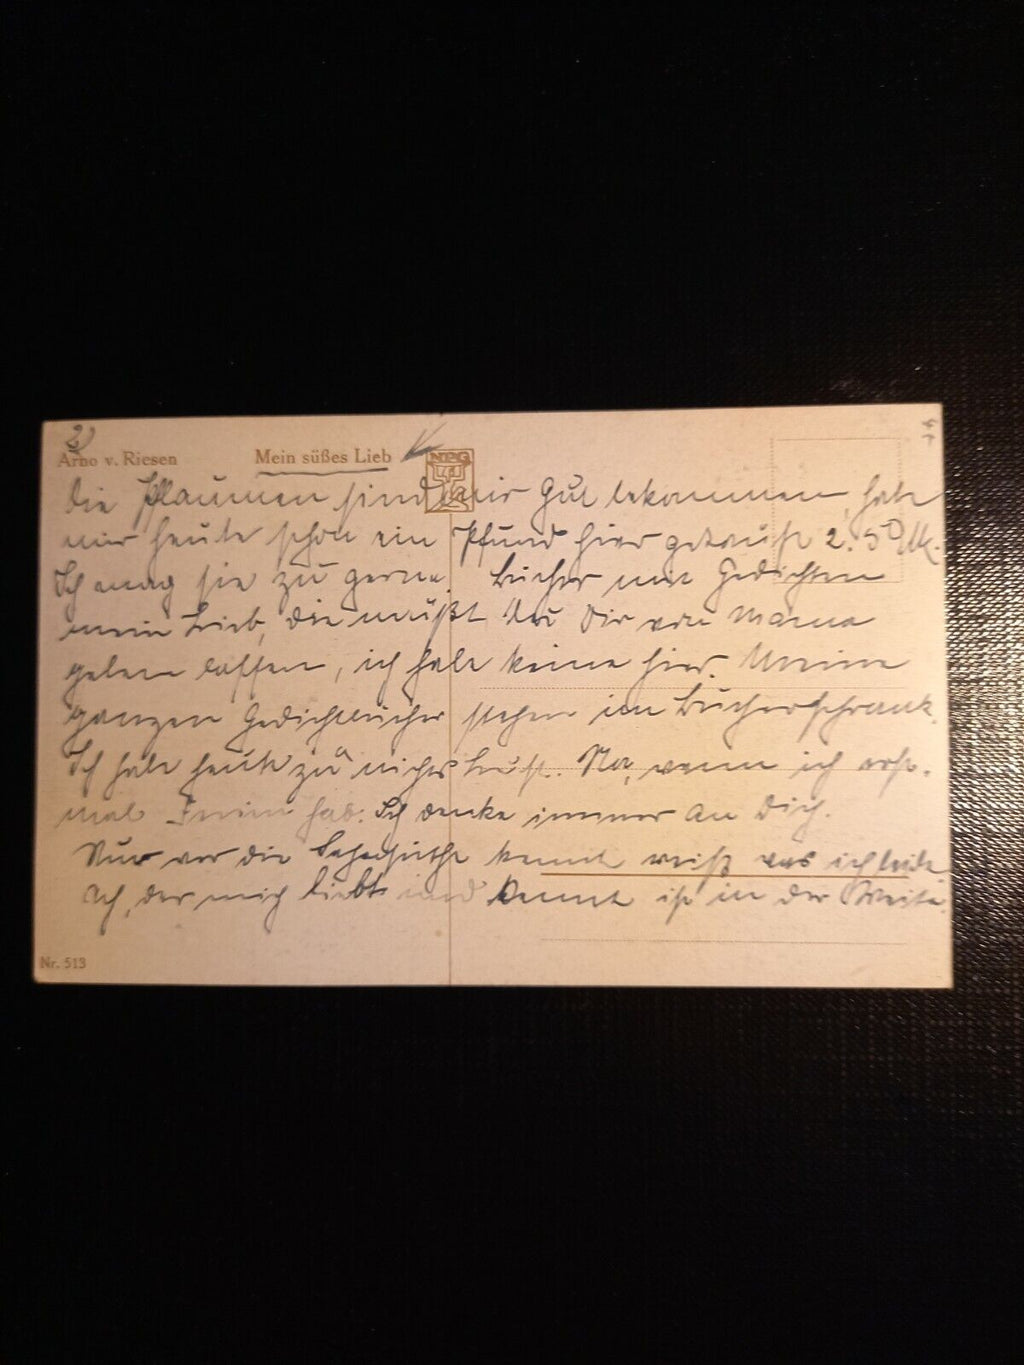 2)
Arno v. Riesen
Mein süßes Lieb
NPG
Die Pflaumen sind mir gut bekommen, habe
mir heute schon ein Pfund hier gekauft 2.50 M.
Ich mag sie zu gerne. Bücher mit Gedichten
mein Lieb, die mußt Du Dir von Mama
geben lassen, ich habe keine hier. Meine
ganzen Gedichtbücher stehen im Bücherschrank.
Ich habe heute zu nichts Lust. Na, wenn ich erst
mal hab. Ich denke immer an Dich.
Nur wer die Sehnsucht kennt weiß was ich leide
Ach, der mich liebt und kennt ist in der Weite.
Nr. 513